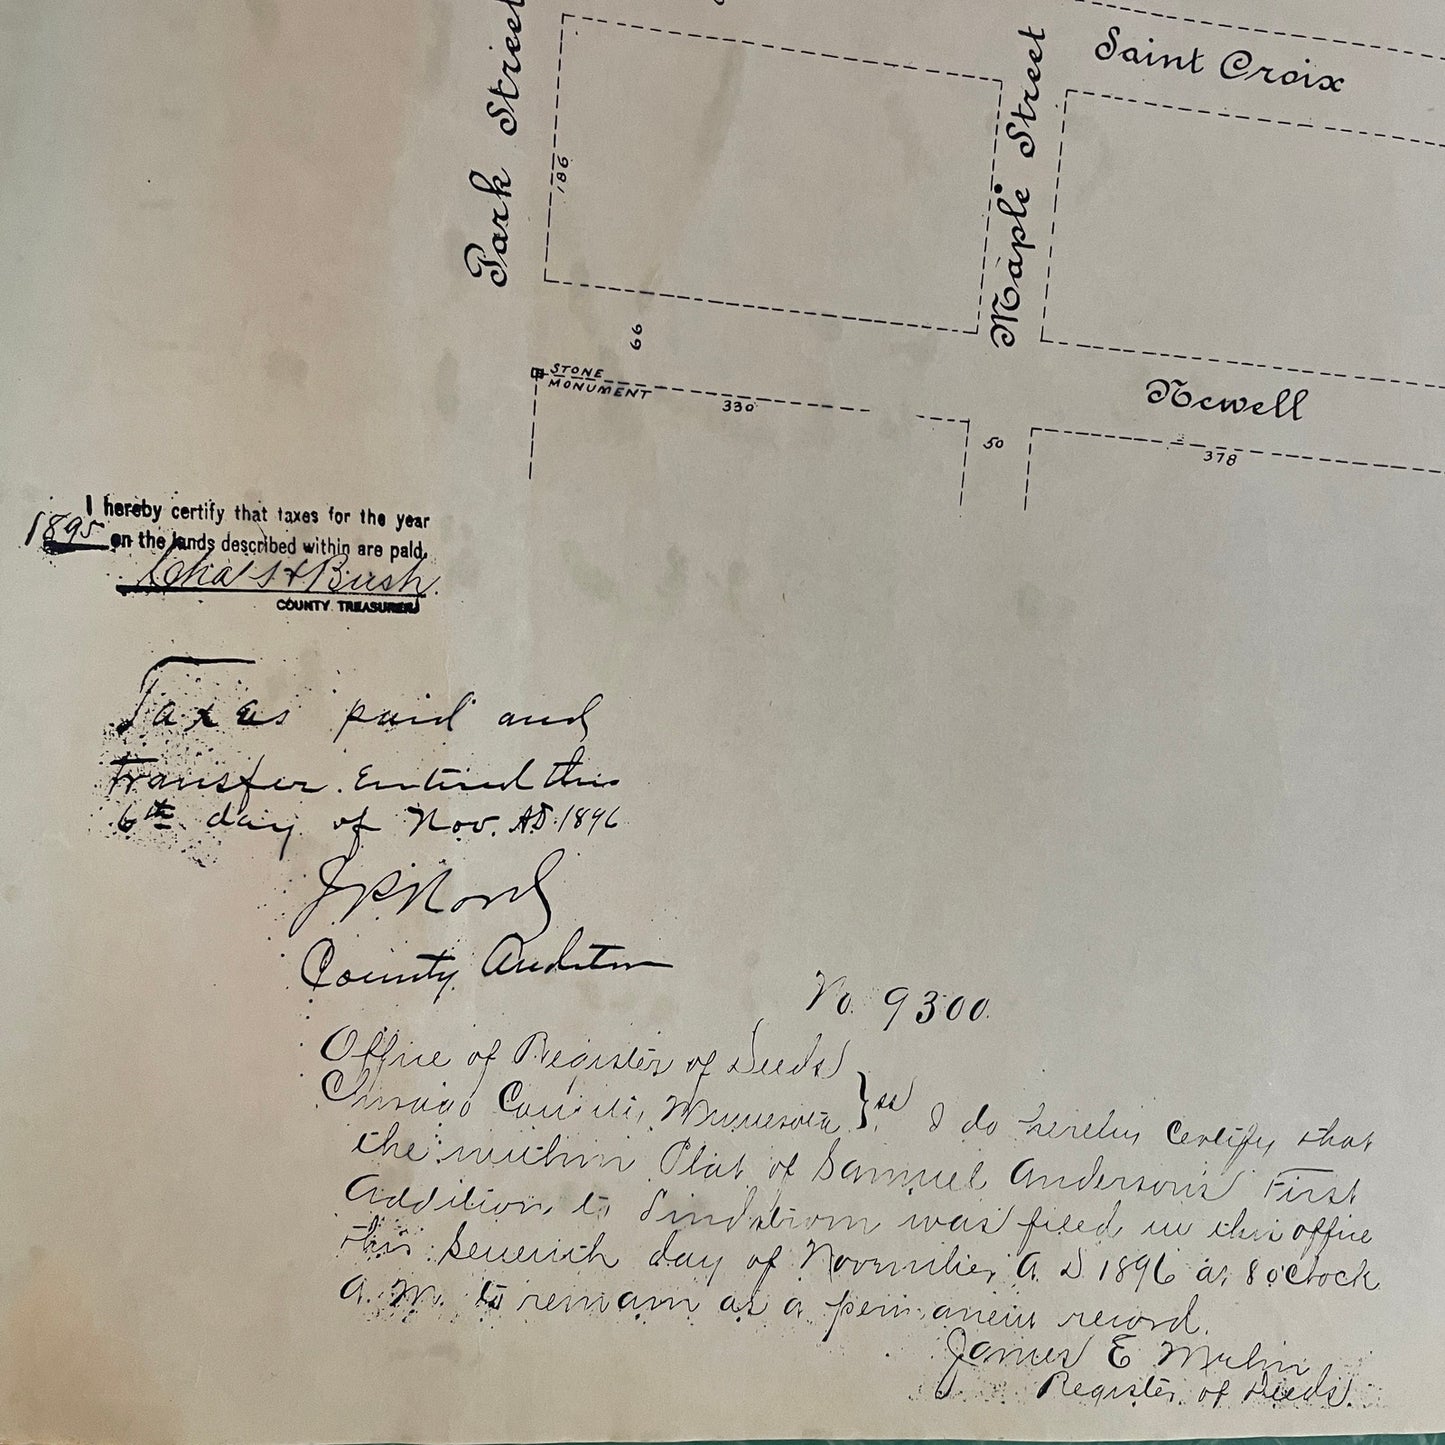 Park Street
Saint Croix
Maple Street
186
66
STONE
MONUMENT
330
Newell
50
378
I hereby certify that taxes for the year
1895 on the lands described within are paid.
Bush
COUNTY TREASURER
Taxes paid and
transfer Entered this
6th day of Nov. AD. 1896
J P Nord
County Auditor
No. 9300.
Office of Register of Deeds
Chisago County, Minnesota } ss. I do hereby certify that
the within Plat of Samuel Anderson's First
Addition to Lindstrom was filed in this office
this seventh day of November A. D 1896 at 8 o'clock
A. M. to remain as a permanent record.
James E
Register of Deeds.